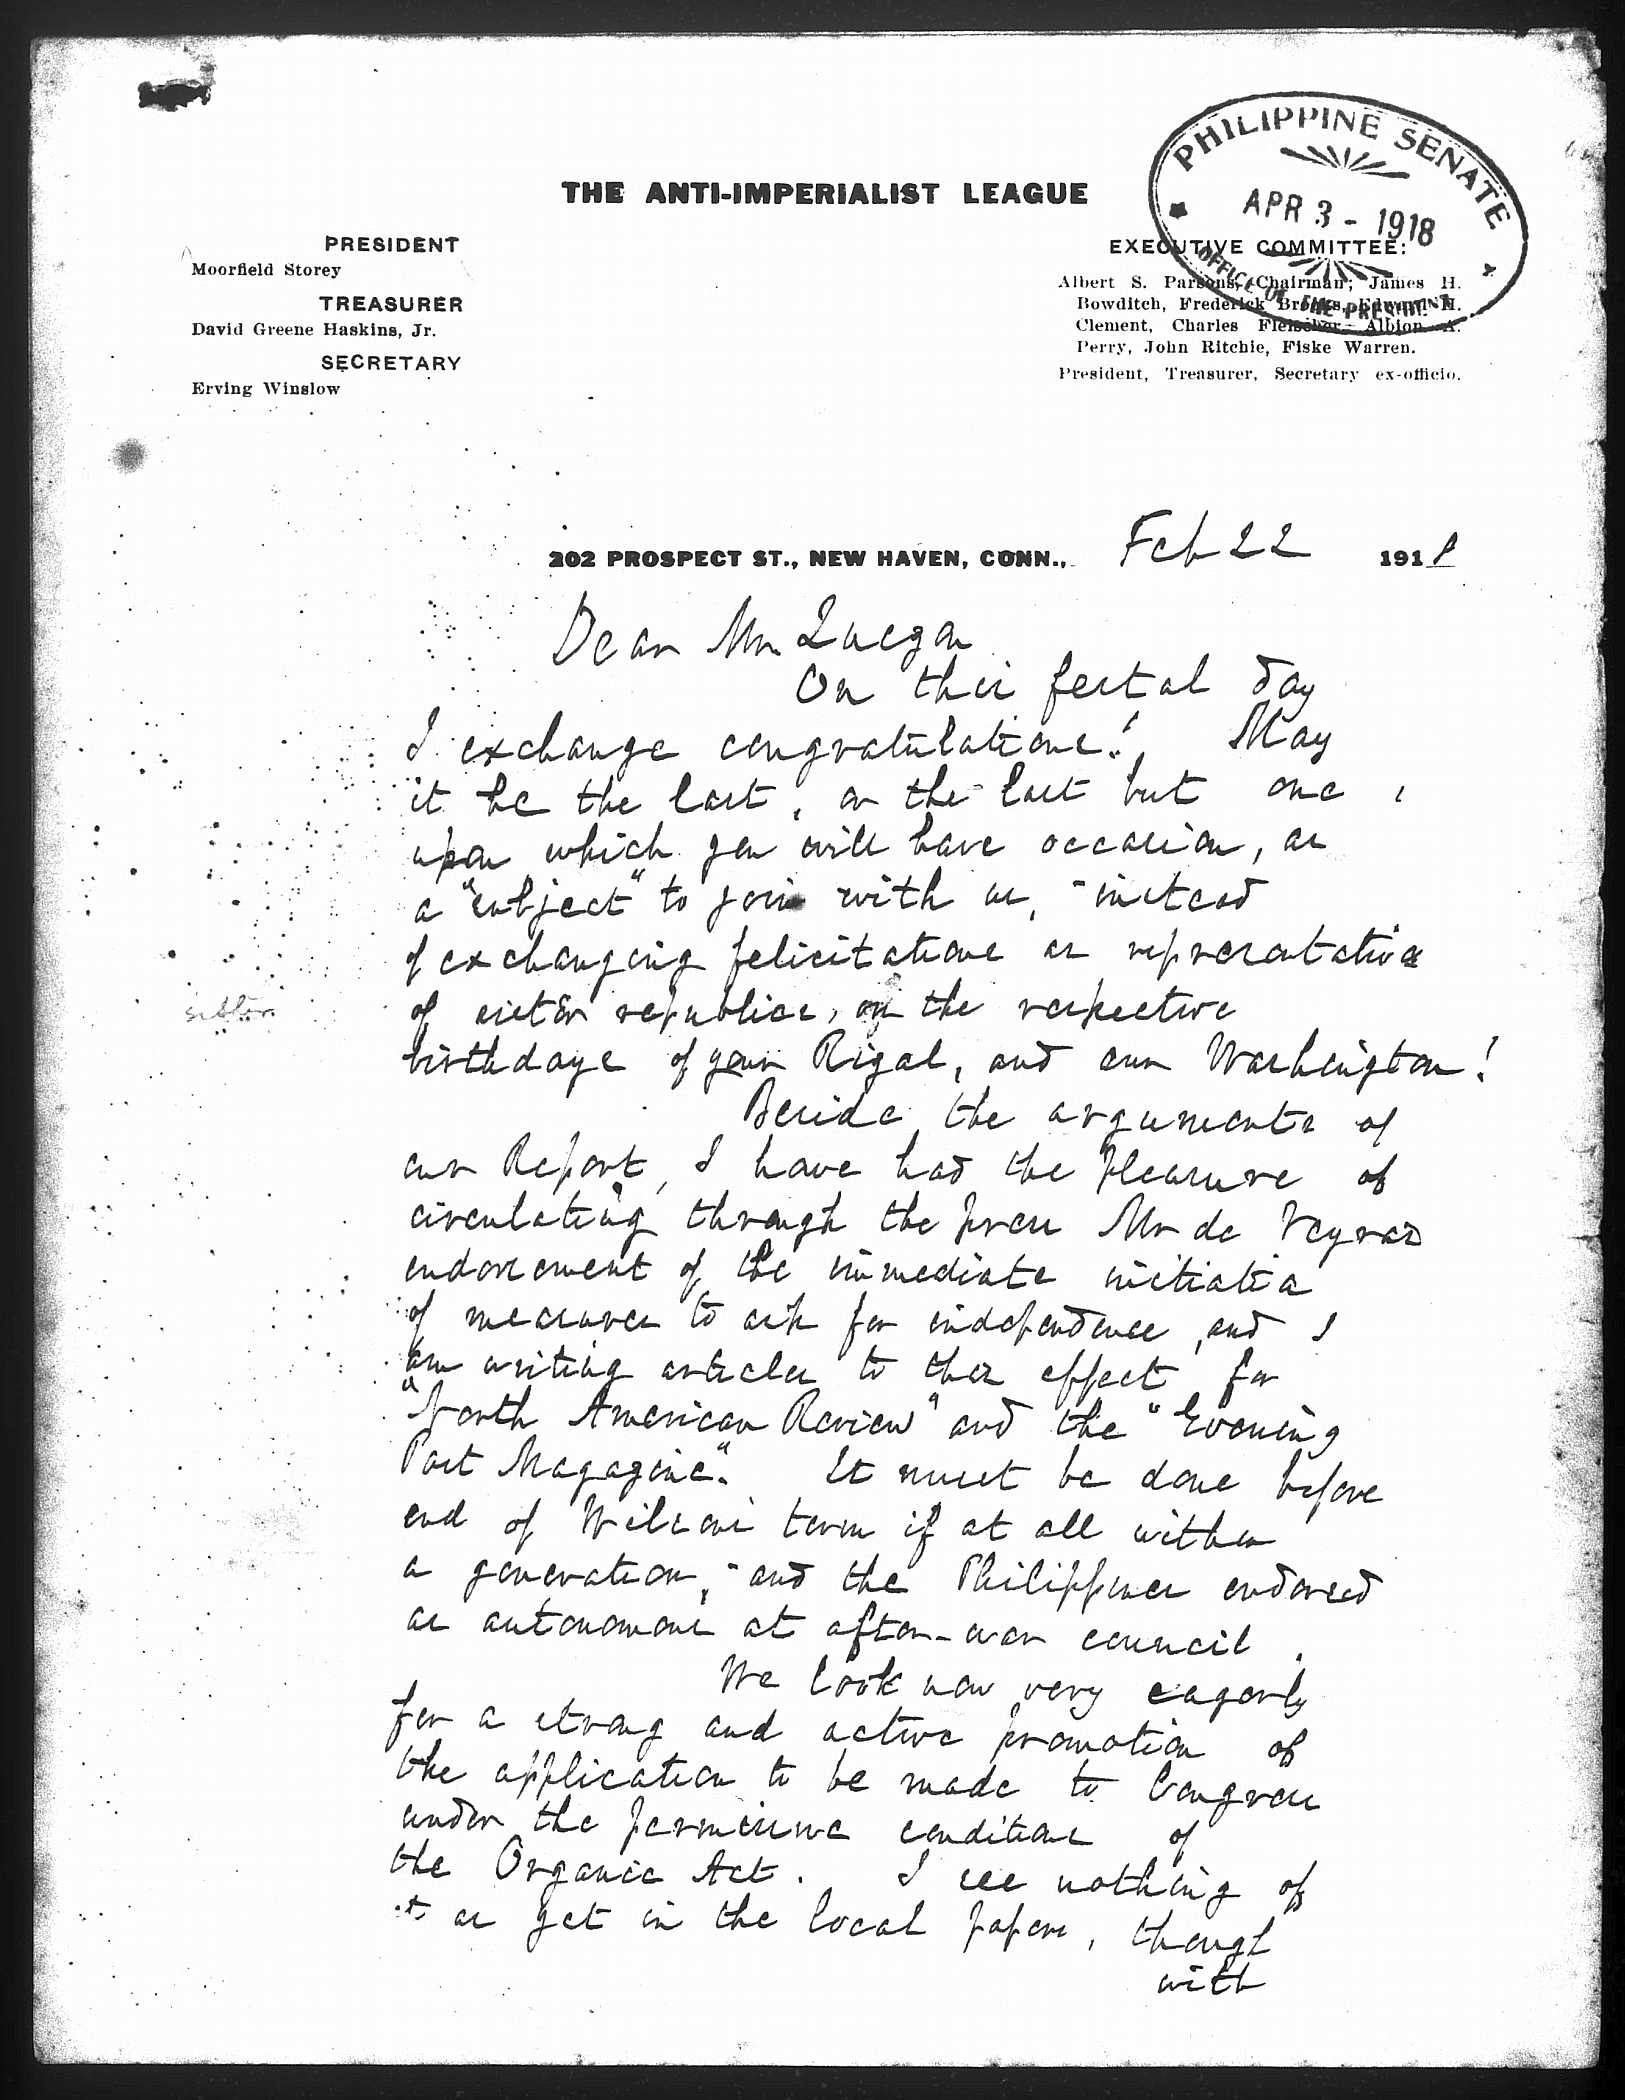 PHILIPPINE SENATE
APR 3 - 1918
OFFICE OF THE PRESIDENT
THE ANTI-IMPERIALIST LEAGUE
PRESIDENT
Moorfield Storey
TREASURER
David Greene Haskins, Jr.
SECRETARY
Erving Winslow
EXECUTIVE COMMITTEE:
Albert S. Parsons, Chairman; James H.
Bowditch, Frederick Brooks, Edwin H.
Clement, Charles Fleischer, Albion A.
Perry, John Ritchie, Fiske Warren.
President, Treasurer, Secretary ex-officio.
202 PROSPECT ST., NEW HAVEN, CONN., Feb 22 1918
Dear Mr. Quezon
On this festal day
I exchange congratulations! May
it be the last, or the last but one,
upon which you will have occasion, as
a "subject" to join with us, - instead
of exchanging felicitations as representative
of sister republics, on the respective
birthdays of your Rizal, and our Washington!
sister
Beside the arguments of
our Report, I have had the pleasure of
circulating through the press Mr de Veyras
endorsement of the immediate initiatia
of measures to ask for independence, and I
am writing articles to this effect for
"North American Review" and the "Evening
Post Magazine". It must be done before
end of Wilson's term if at all within
a generation, - and the Philippines endorsed
as autonomous at after-war council.
We look now very eagerly
for a strong and active promotion of
the application to be made to Congress
under the permissive conditions of
the Organic Act. I see nothing of
it as yet in the local papers, though
with